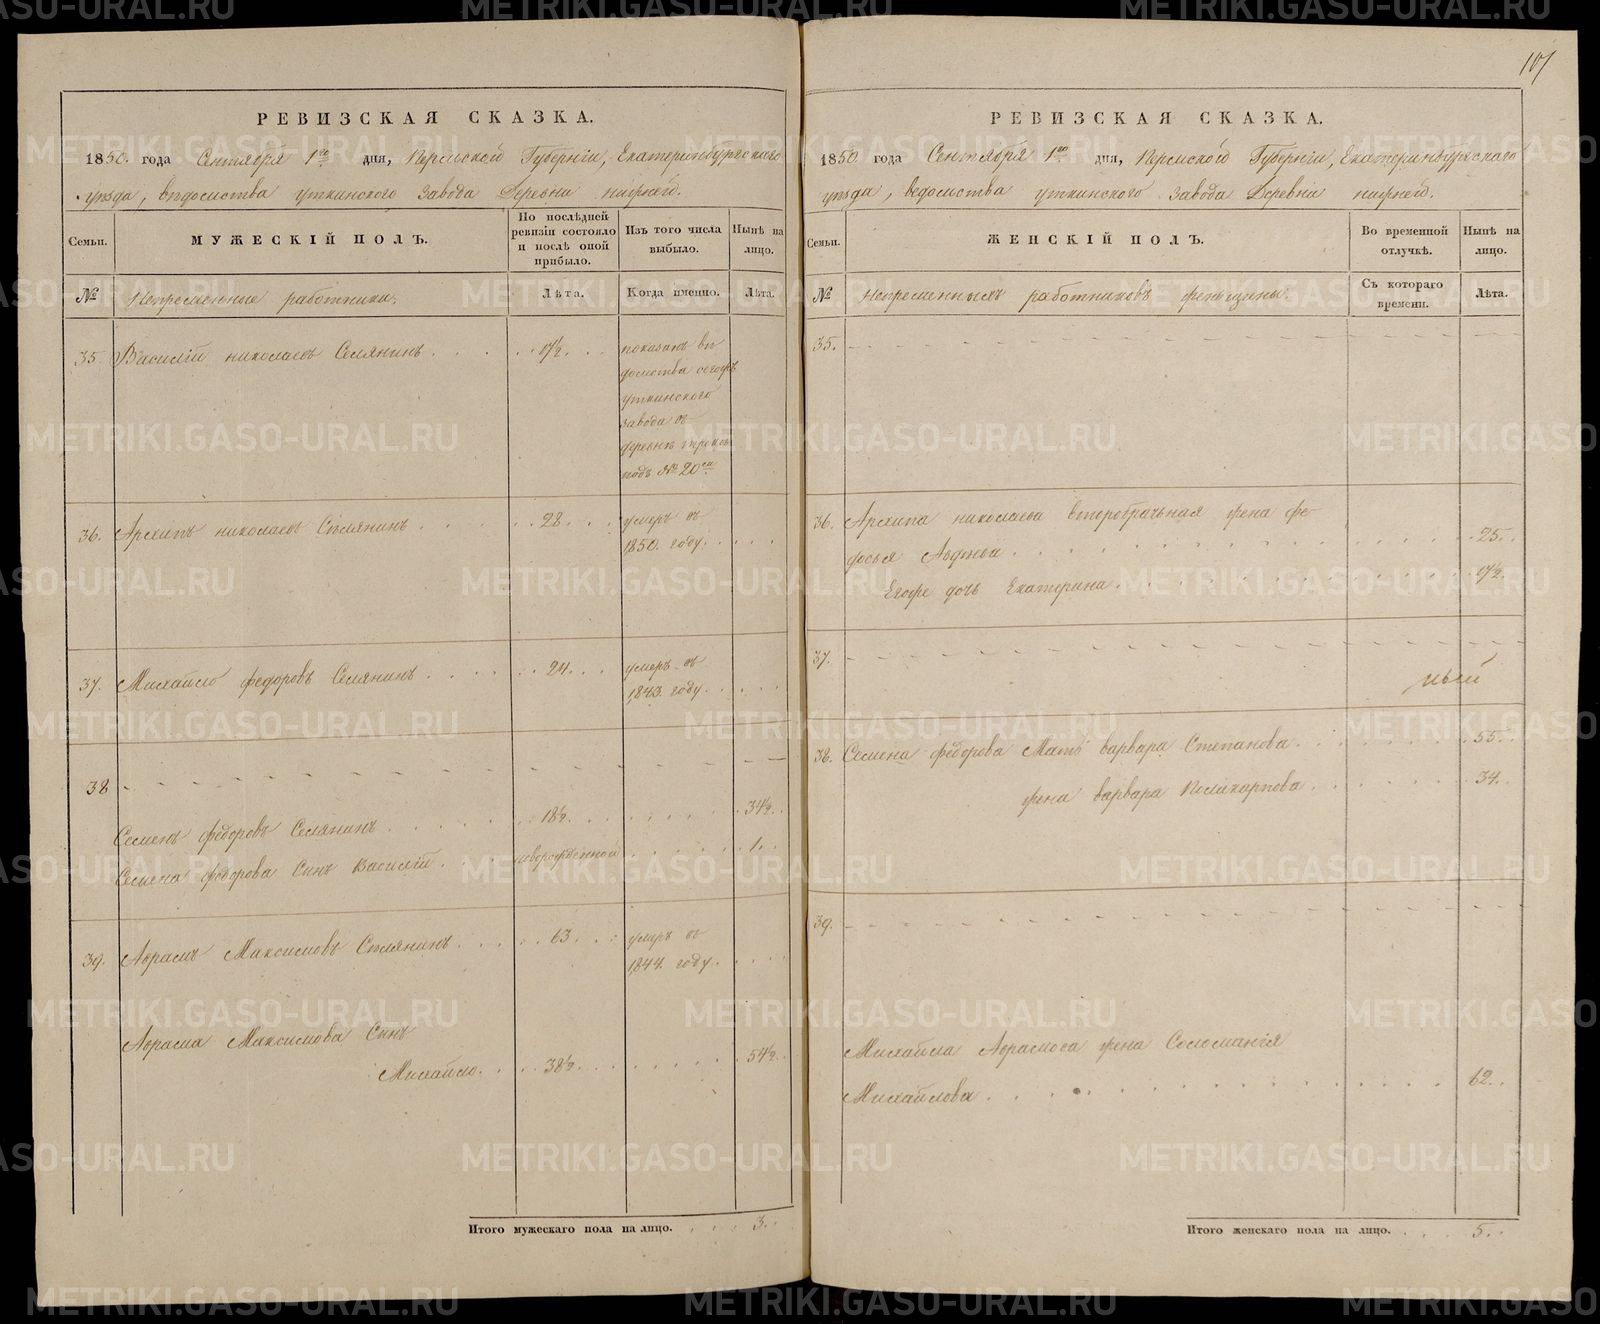 107
РЕВИЗСКАЯ СКАЗКА.
1850. года Сентября 1го дня, Пермской Губерніи, Екатеринбургскаго
уѣзда, вѣдомства уткинского Завода Деревни нижней.
Семьи.
МУЖЕСКІЙ ПОЛЪ.
По послѣдней
ревизіи состояло
и послѣ оной
прибыло.
Изъ того числа
выбыло.
Нынѣ на
лицо.
№
Непременные работники.
Лѣта.
Когда именно.
Лѣта.
35. Василій николаевъ Селянинъ 1/2.
показанъ вѣ
домства сегожъ
уткинского
завода въ
деревнѣ
подъ № 20мъ
36. Архипъ николаевъ Селянинъ 28. умеръ въ
1850. году.
37. Михайло федоровъ Селянинъ 24. умеръ въ
1843. году.
38
Семенъ федоровъ Селянинъ 18½ 34½
Семена федорова Сынъ Василій новорожденной 1.
39. Абрамъ Максимовъ Селянинъ 63. умеръ въ
1844. году.
Абрама Максимова Сынъ
Михайло. 38½ 54½
Итого мужескаго пола на лицо. 3.
РЕВИЗСКАЯ СКАЗКА.
1850 года Сентября 1го дня, Пермской Губерніи, Екатеринбургскаго
уѣзда, ведомства уткинского Завода Деревни нижней.
Семьи.
ЖЕНСКІЙ ПОЛЪ.
Во временной
отлучкѣ.
Нынѣ на
лицо.
№
Непременныхъ работниковъ женщины.
Съ котораго
времени.
Лѣта.
35.
36. Архипа николаева второбрачьная жена фе-
досья 25.
Егоже дочь Екатерина. 1/2.
37.
38. Семена федорова Мать варвара Степанова. 55.
жена варвара Поликарпова. 34.
39.
Михайла Абрамова жена Соломанія
Михайлова 62.
Итого женскаго пола на лицо. 5.
METRIKI.GASO-URAL.RU